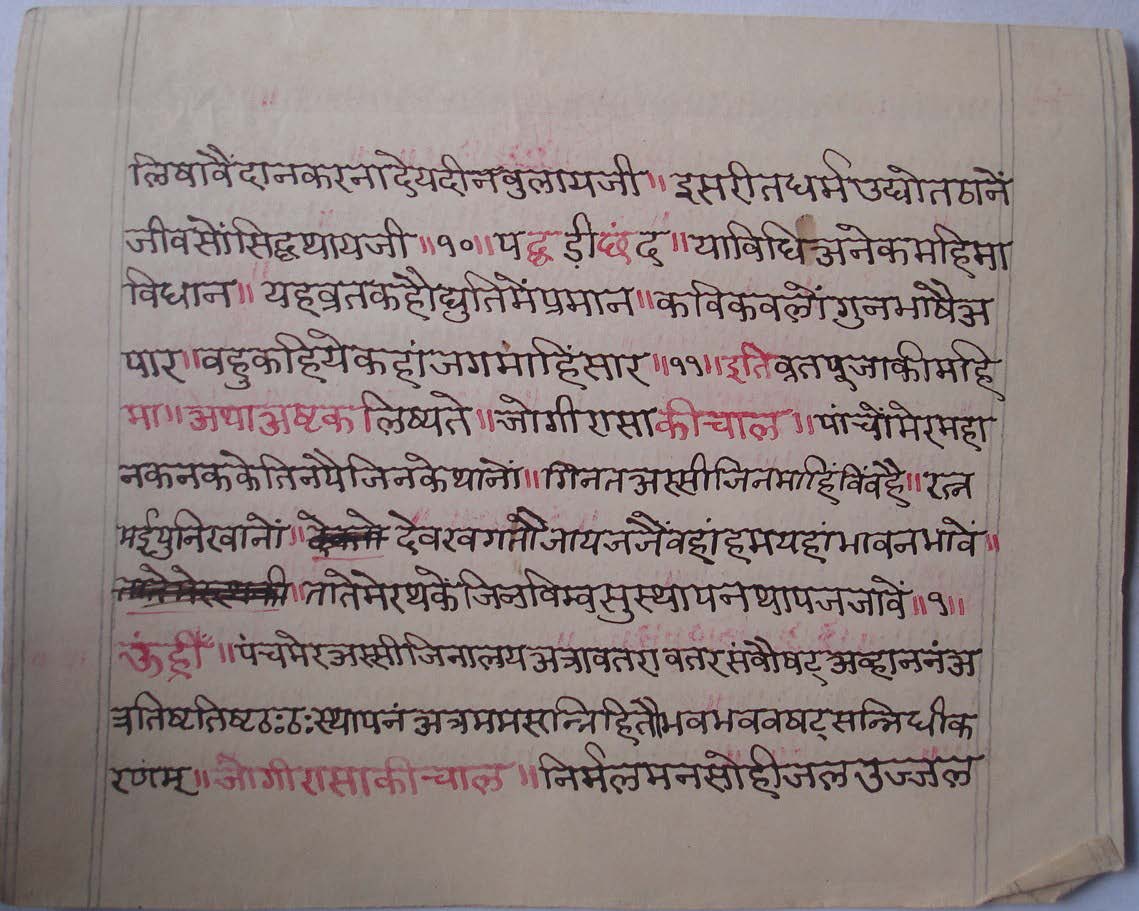 लिषावैंदानकरनादेयदीनवुलायजी॥ इसरीतधर्मउद्योतठानें
जीवसोंसिद्धथायजी॥१०॥पद्धड़ीछंद॥याविधिअनेकमहिमा
विधान॥ यहव्रतकहौद्युतिमेंप्रमान॥कविकवलोंगुनभाषैअ
पार॥वहुकहियेकहांजगमांहिंसार॥११॥इतिव्रतपूजाकीमहि
मा॥अथाअष्टकलिष्यते॥जोगीरासाकीचाल॥पांचोंमेरमहा
नकनककेतिनपैजिनकेथानों॥गिनतअस्सीजिनमाहिंविंवहै॥रत्न
मईपुनिरवानों॥ देवरवगतौजायजजैंवहांहमयहांभावनभावें॥
॥तातेमेरथकेजिनविम्वसुस्थापनथापजजावें॥१॥
ऊंह्रीँ॥पंचमेरअस्सीजिनालयअत्रावतरावतरसंवौषट्अव्हाननंअ
त्रतिष्टतिष्टठःठःस्थापनंअत्रममसन्निहितौभवभववषट्सन्निधीक
रणंम्॥जोगीरासाकीचाल॥निर्मलमनसोहीजलउज्जल